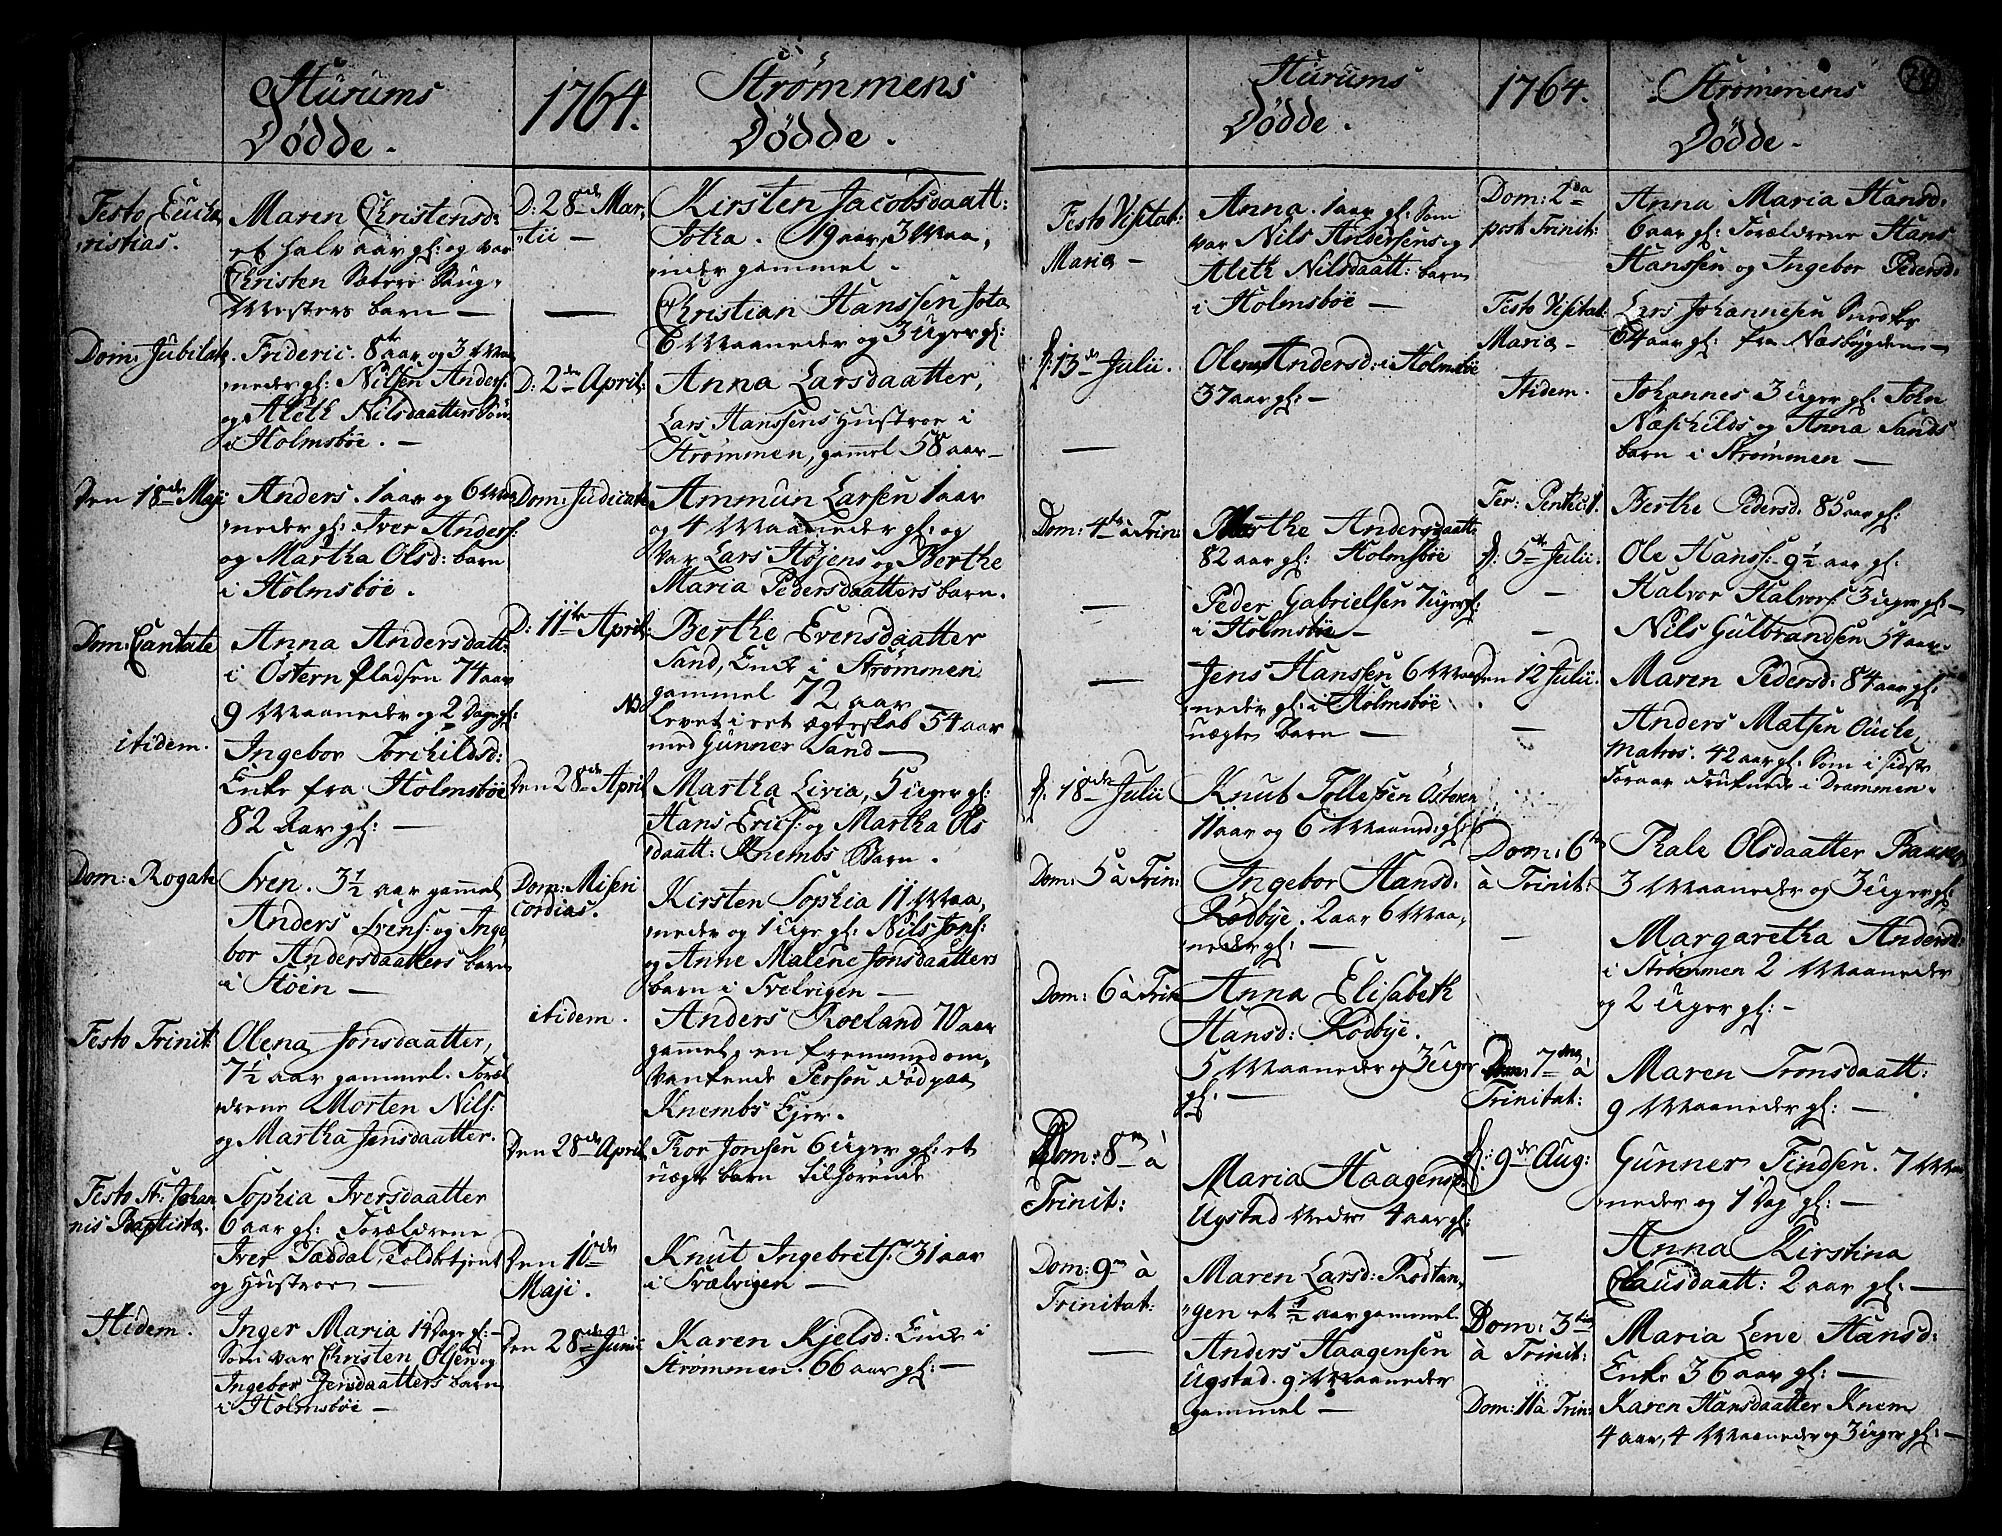 Hurums
Dödde.
Festo Eucha
ristias.
Maren Christensd:
et halv aar gl: og var
Christen Sæteri Saug,
Mesters barn —
Dom: Jubilate
Frideric. 8 aar og 3 Maa
neder gl: Nilsen Anders:
og Aleth Nilsdaatters Sön
i Holmsböe. —
Den 18de Maji
Anders. 1 aar og 6 Maa
neder gl: Iver Anders:
og Martha Olsd: barn
i Holmsböe.
Dom: Cantate
Anna Andersdatt:
i Östern Pladsen 74 aar
9 Maaneder og 2 Dage gl:
ibidem.
Ingebor Torchildsd:
Enke fra Holmsböe
82 Aar gl: —
Dom: Rogate
Sven. 3½ aar gammel
Anders Svens: og Inge,
bor Andersdaatters barn
i Stöin —
Festo Trinit:
Olena Jonsdaatter,
7½ aar gammel. Foræl
drene Morten Nils:
og Martha Jensdaatter.
Festo St: Johan
nis Baptista.
Sophia Iversdaatter
6 aar gl: Forældrene
Iver Taddal, Toldbetjent
og Hustroe —
Ibidem.
Inger Maria 14 Dage gl: —
Som var Christen Olsen og
Ingebor Jensdaatters barn
i Holmsböe —
1764.
Strømmens
Dödde.
D: 28de Mar,
tii —
Kirsten Jacobsdaatt:
Jotha. 19 aar, 3 Maa,
neder gammel.
—
Christian Hanssen Jota
6 Maaneder og 3 Uger gl:
D: 2den April:
Anna Larsdaatter,
Lars Hanssens Hustroe i
Strømmen, gammel 58 aar —
Dom: Judicate
Ammun Larsen 1 aar
og 4 Maaneder gl: og
Var Lars Højens og Berthe
Maria Pedersdaatters barn.
D: 11te April:
Berthe Evensdaatter
Sand, Enke i Strømmen
gammel 72 aar —
NB
Levet i eet ægteskab 54 aar
med Gunner Sand —
Den 28de April
Martha Livia, 5 Uger gl:
Hans Erics: og Martha Ols
daatt: Knembs Barn.
Dom: Miseri
cordias.
Kirsten Sophia 11 Maa,
neder og 1 Uge gl: Nils Jons:
og Anne Malene Jonsdaatters
barn i Svelvigen —
ibidem.
Anders Roeland 70 aar
gammel, en fremmed om,
vankende Person død paa
Knembs Ejer.
Den 28de April
Tor Jonsen 6 Uger gl: et
uægte barn tilhörende
Den 10de
Maji.
Knut Ingebrets: 31 aar
i Svælvigen —
Den 28de Junii
Karen Kjelsd: Enke i
Strommen. 66 aar gl: —
Hurums
Dödde.
Festo Visitat:
Mariæ —
Anna. 1 aar gl: Som
var Nils Andersens og
Aleth Nilsdaatt: barn
i Holmsböe —
d: 13de Julii.
Olena Andersd: i Holmsböe
37 aar gl: —
—
Dom: 4te à Trin:
Marthe Andersdaatt:
82 aar gl: Holmsböe
—
Peder Gabrielsen 7 Uger gl:
i Holmsböe —
—
Jens Hanssen 6 Maa
neder gl: i Holmsböe
uægte barn —
d: 18de Julii
Knud Tollefsen Österen
11 aar og 6 Maaned: gl:
Dom: 5 à Trin:
Ingebor Hansd:
Rödbye. 2 aar 6 Maa,
neder gl: —
Dom: 6 à Trin
Anna Elisabeth
Hansd: Rödbye.
5 Maaneder og 3 Uger
gl: —
Dom: 8 à
Trinit:
Maria Haagensd:
Ugstad 4 aar gl:
Dom: 9 à
Trinitat:
Maren Larsd: Rödtan,
gen et ½ aar gammel
—
Anders Haagensen
Ugstad. 9 Maaneder
gammel —
1764.
Strømmens
Dödde.
74
Dom: 2da
post Trinit:
Anna Maria Hansd:
6 aar gl: Forældrene Hans
Hanssen og Ingebor Pedersd:
Festo Visitat:
Mariæ —
Lars Johannesen Snedker
64 aar gl: fra Næsbygden —
Ibidem.
Johannes 3 Uger gl: John
Næschilds og Anna Sands
barn i Strømmen —
Fer: Pentec: 1.
Berthe Pedersd: 85 aar gl:
d: 5te Julii.
Ole Hanss: 9½ aar gl:
—
Halvor Halvors: 3 Uger gl: —
—
Nils Gulbrandsen 54 aar —
Den 12 Julii.
Maren Pedersd: 84 aar gl:
—
Anders Matsen
Matros. 42 aar gl: Som i sidste
Foraar druknede i Drammen.
Dom: 6te
à Trinit:
Kale Olsdaatter
3 Maaneder og 3 Uger gl:
—
Margaretha Andersd:
i Strømmen 2 Maaneder
og 2 Uger gl: —
Dom: 7 à
Trinitat:
Maren Tronsdaatt:
9 Maaneder gl: —
d: 9de Aug:
Gunner Findsen. 7 Maa,
neder og 1 Dag gl: —
—
Anna Kirstina
Clausdaatt: 2 aar gl: —
Dom: 3tia
à Trinit:
Maria Lene Hansd:
Enke 36 aar gl: —
Dom: 11 à Trin:
Karen Hansdaatter Knem
4 aar, 4 Maaneder og 3 Uger gl: —